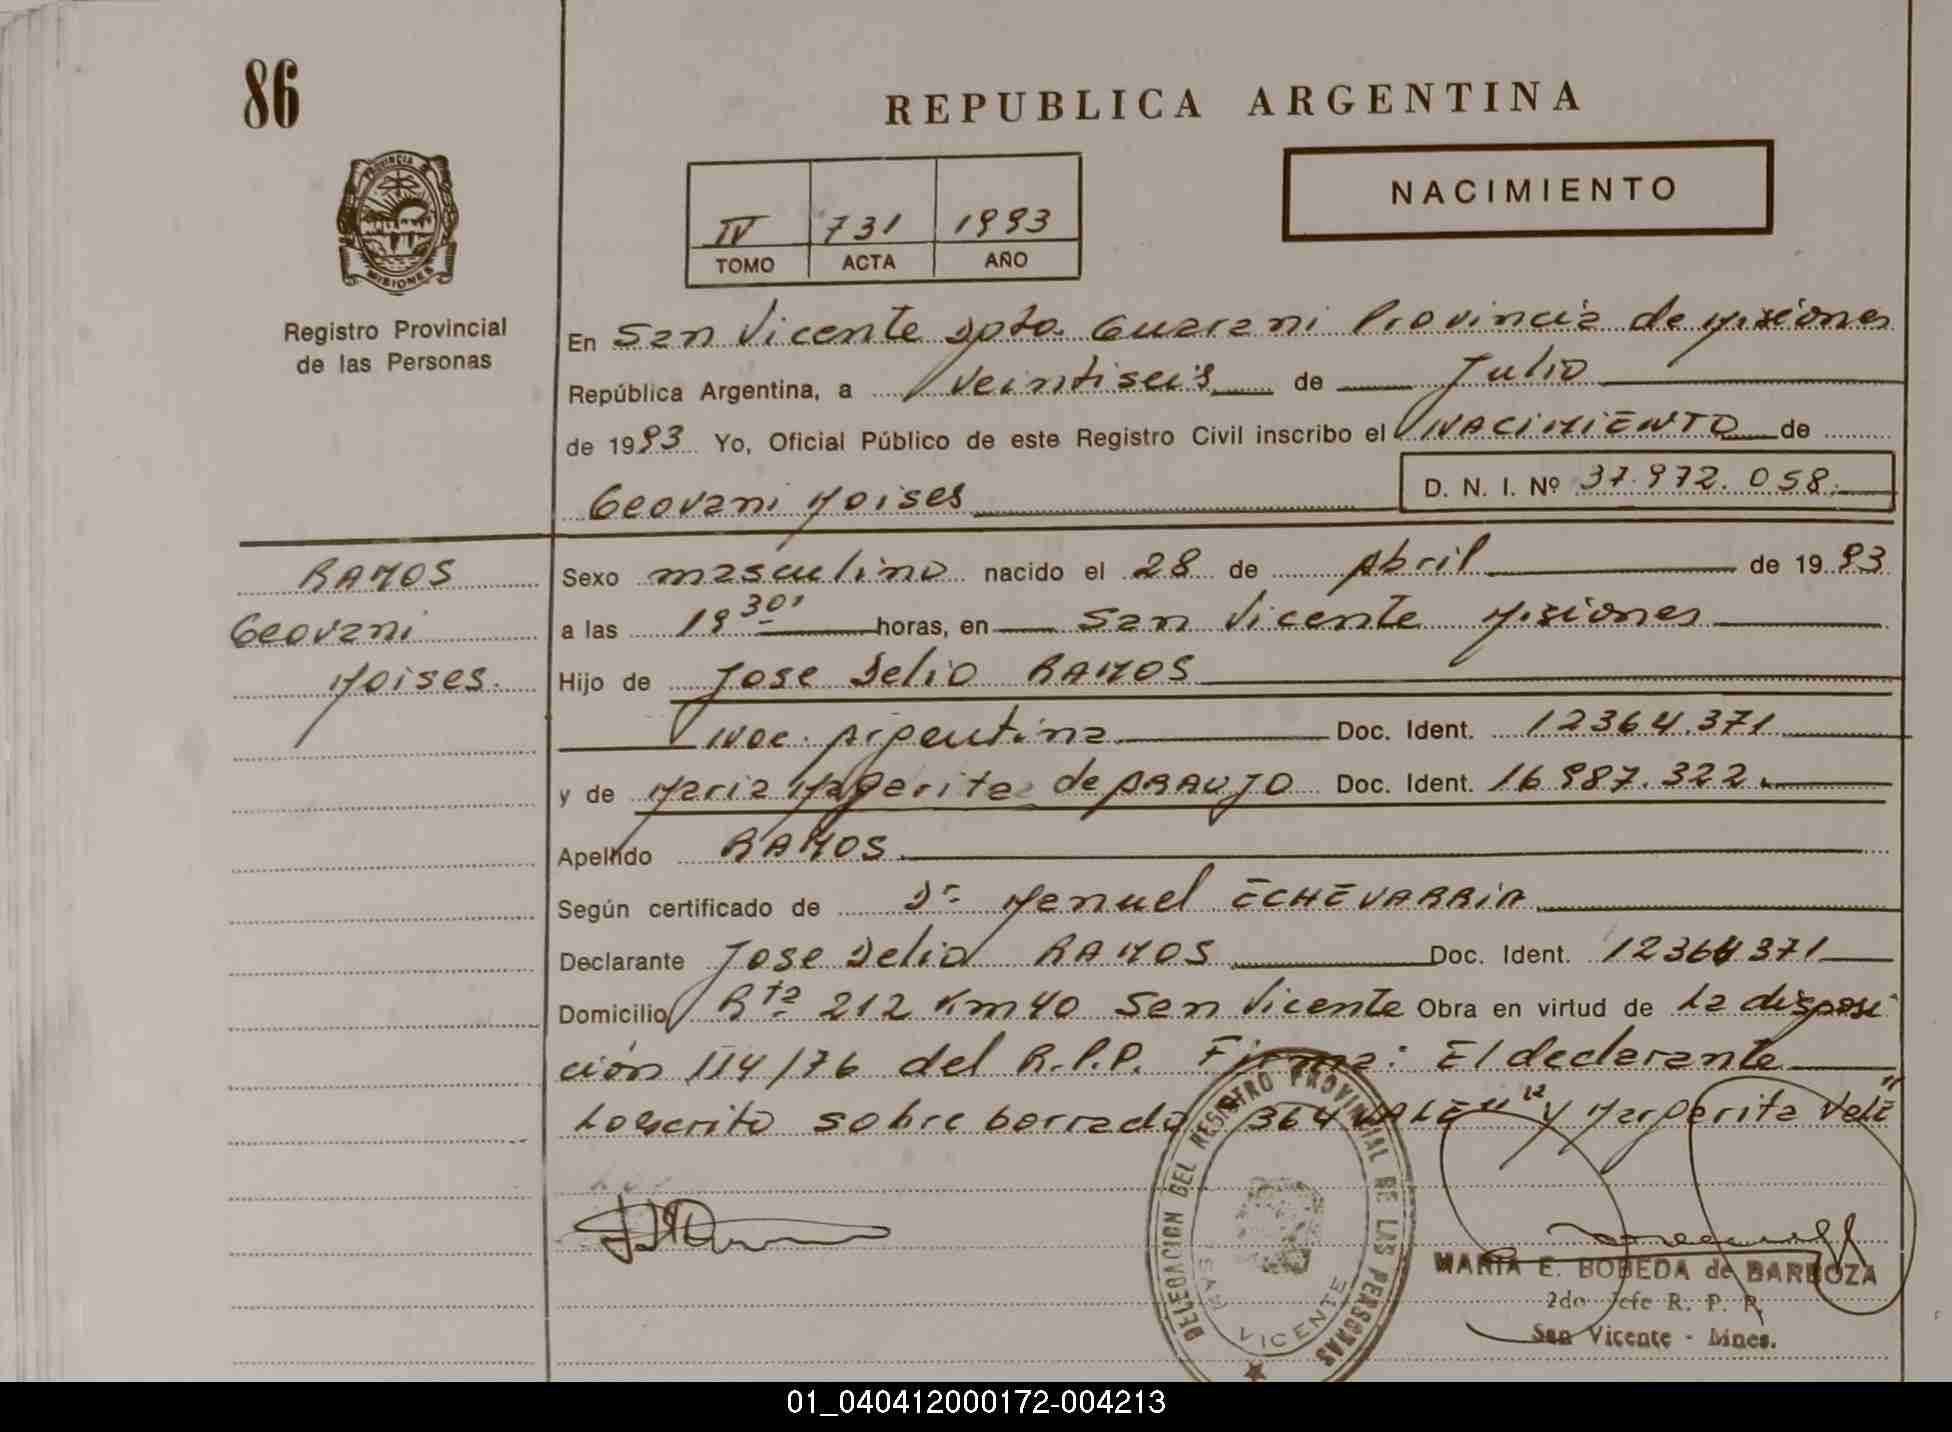 86
REPUBLICA ARGENTINA
NACIMIENTO
IV 731 1993
TOMO ACTA AÑO
PROVINCIA DE MISIONES
Registro Provincial
de las Personas
En San Vicente Dpto. Guarani Provincia de Misiones
República Argentina, a veintiseis de Julio
de 1993 Yo, Oficial Público de este Registro Civil inscribo el NACIMIENTO de
Geovani Moises D. N. I. Nº 37.972.058.
RAMOS
Geovani
Moises.
Sexo masculino nacido el 28 de Abril de 1993
a las 19 30' horas, en San Vicente Misiones
Hijo de Jose Delio RAMOS
Nac. Argentina Doc. Ident. 12364.371
y de Maria Margerita de ARAUJO Doc. Ident. 16987.322.
Apellido RAMOS
Según certificado de Dr. Manuel ECHEVARRIA
Declarante Jose Delio RAMOS Doc. Ident. 12364371
Domicilio Rta 212 Km 40 San Vicente Obra en virtud de la disposi
ción 114/76 del R.P.P. Firma: El declarante
Lo escrito sobre borrado 364 VALE" "y Margarita Vale"
DELEGACION DEL REGISTRO PROVINCIAL DE LAS PERSONAS
SAN VICENTE
MARIA E. BOBEDA de BARBOZA
2do Jefe R. P. P.
San Vicente - Mnes.
01_040412000172-004213